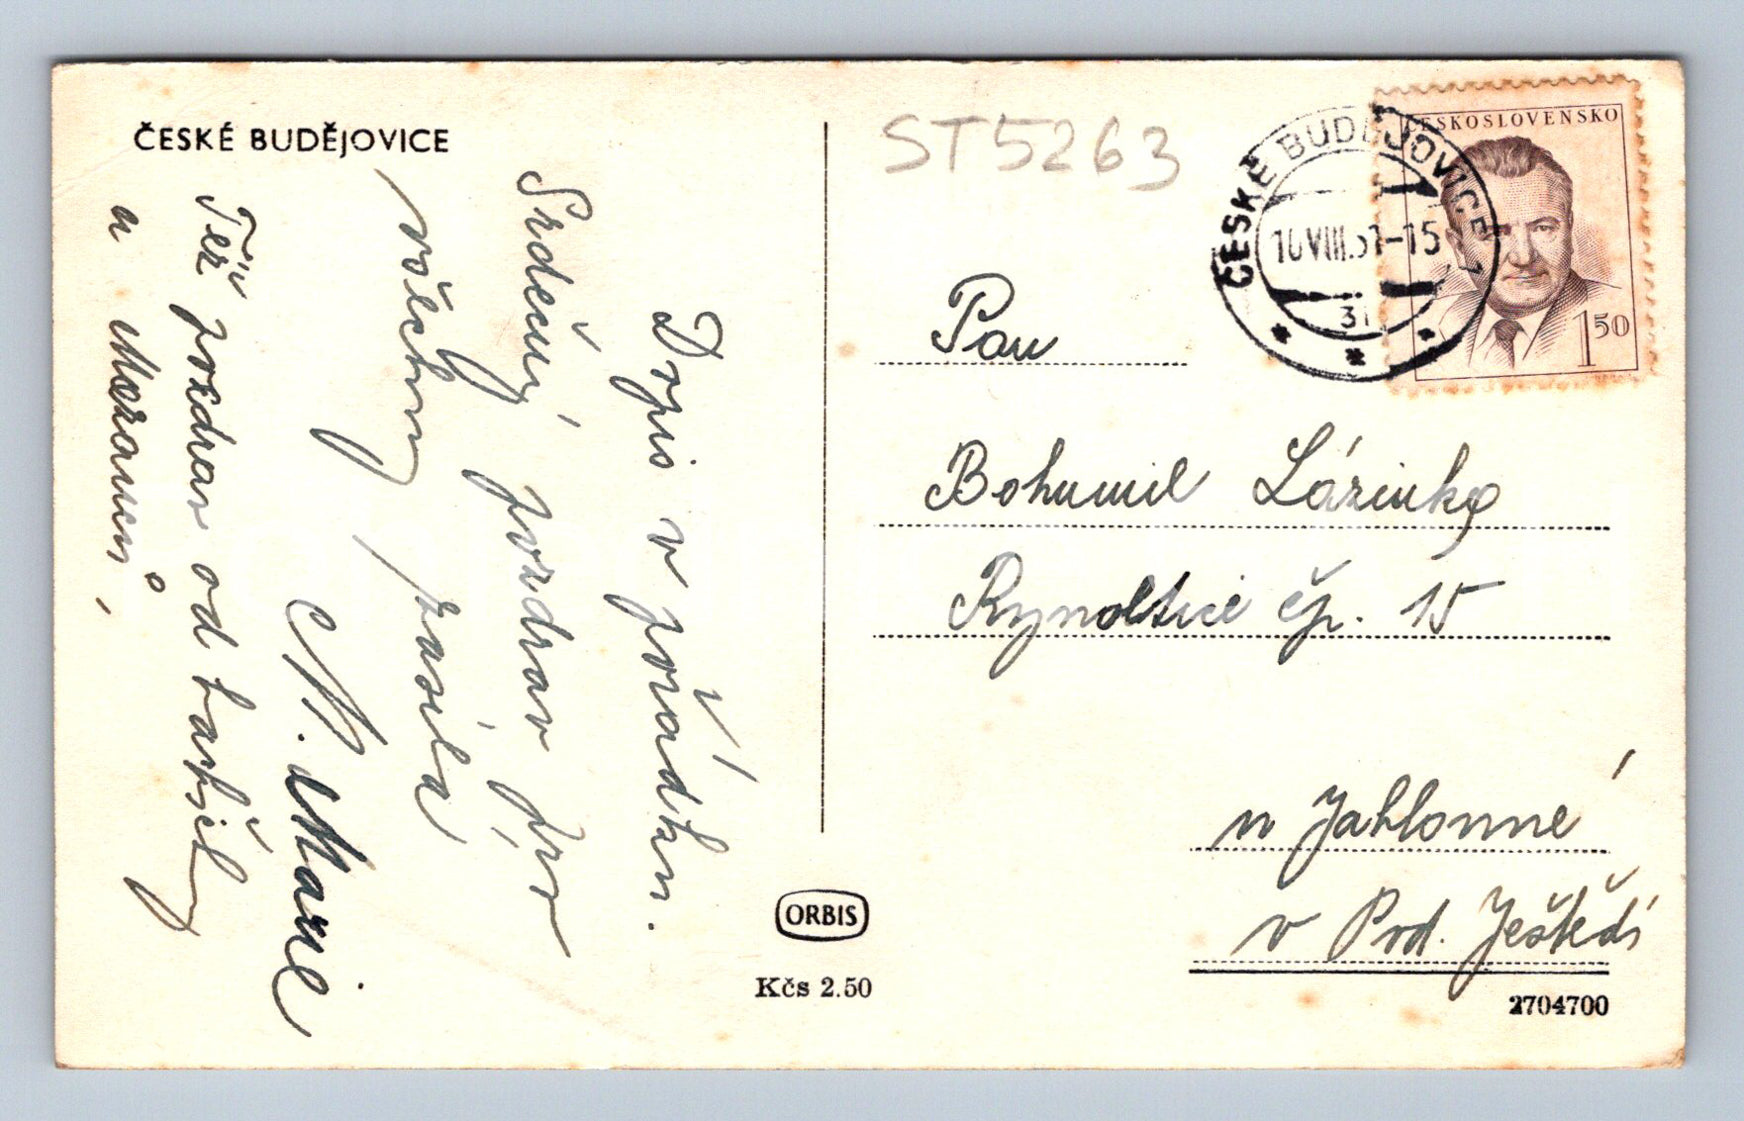 ČESKÉ BUDĚJOVICE
Dopis v pořádku.
Srdečný pozdrav pro
všechny zasílá
M. Marie
Též pozdrav od
u
ST5263
ČESKÉ BUDĚJOVICE 1
16 VIII.51-15
31
ČESKOSLOVENSKO
1 50
Pan
Bohumil Lázinka
Rynoltice čp. 15
u Jablonné
v Pod. Ještědí
ORBIS
Kčs 2.50
2704700